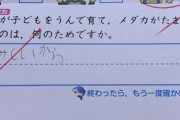 が子どもをうんで育て，メダカがたま
のは，何のためですか。
さいしいから
終わったら，もう一度確か